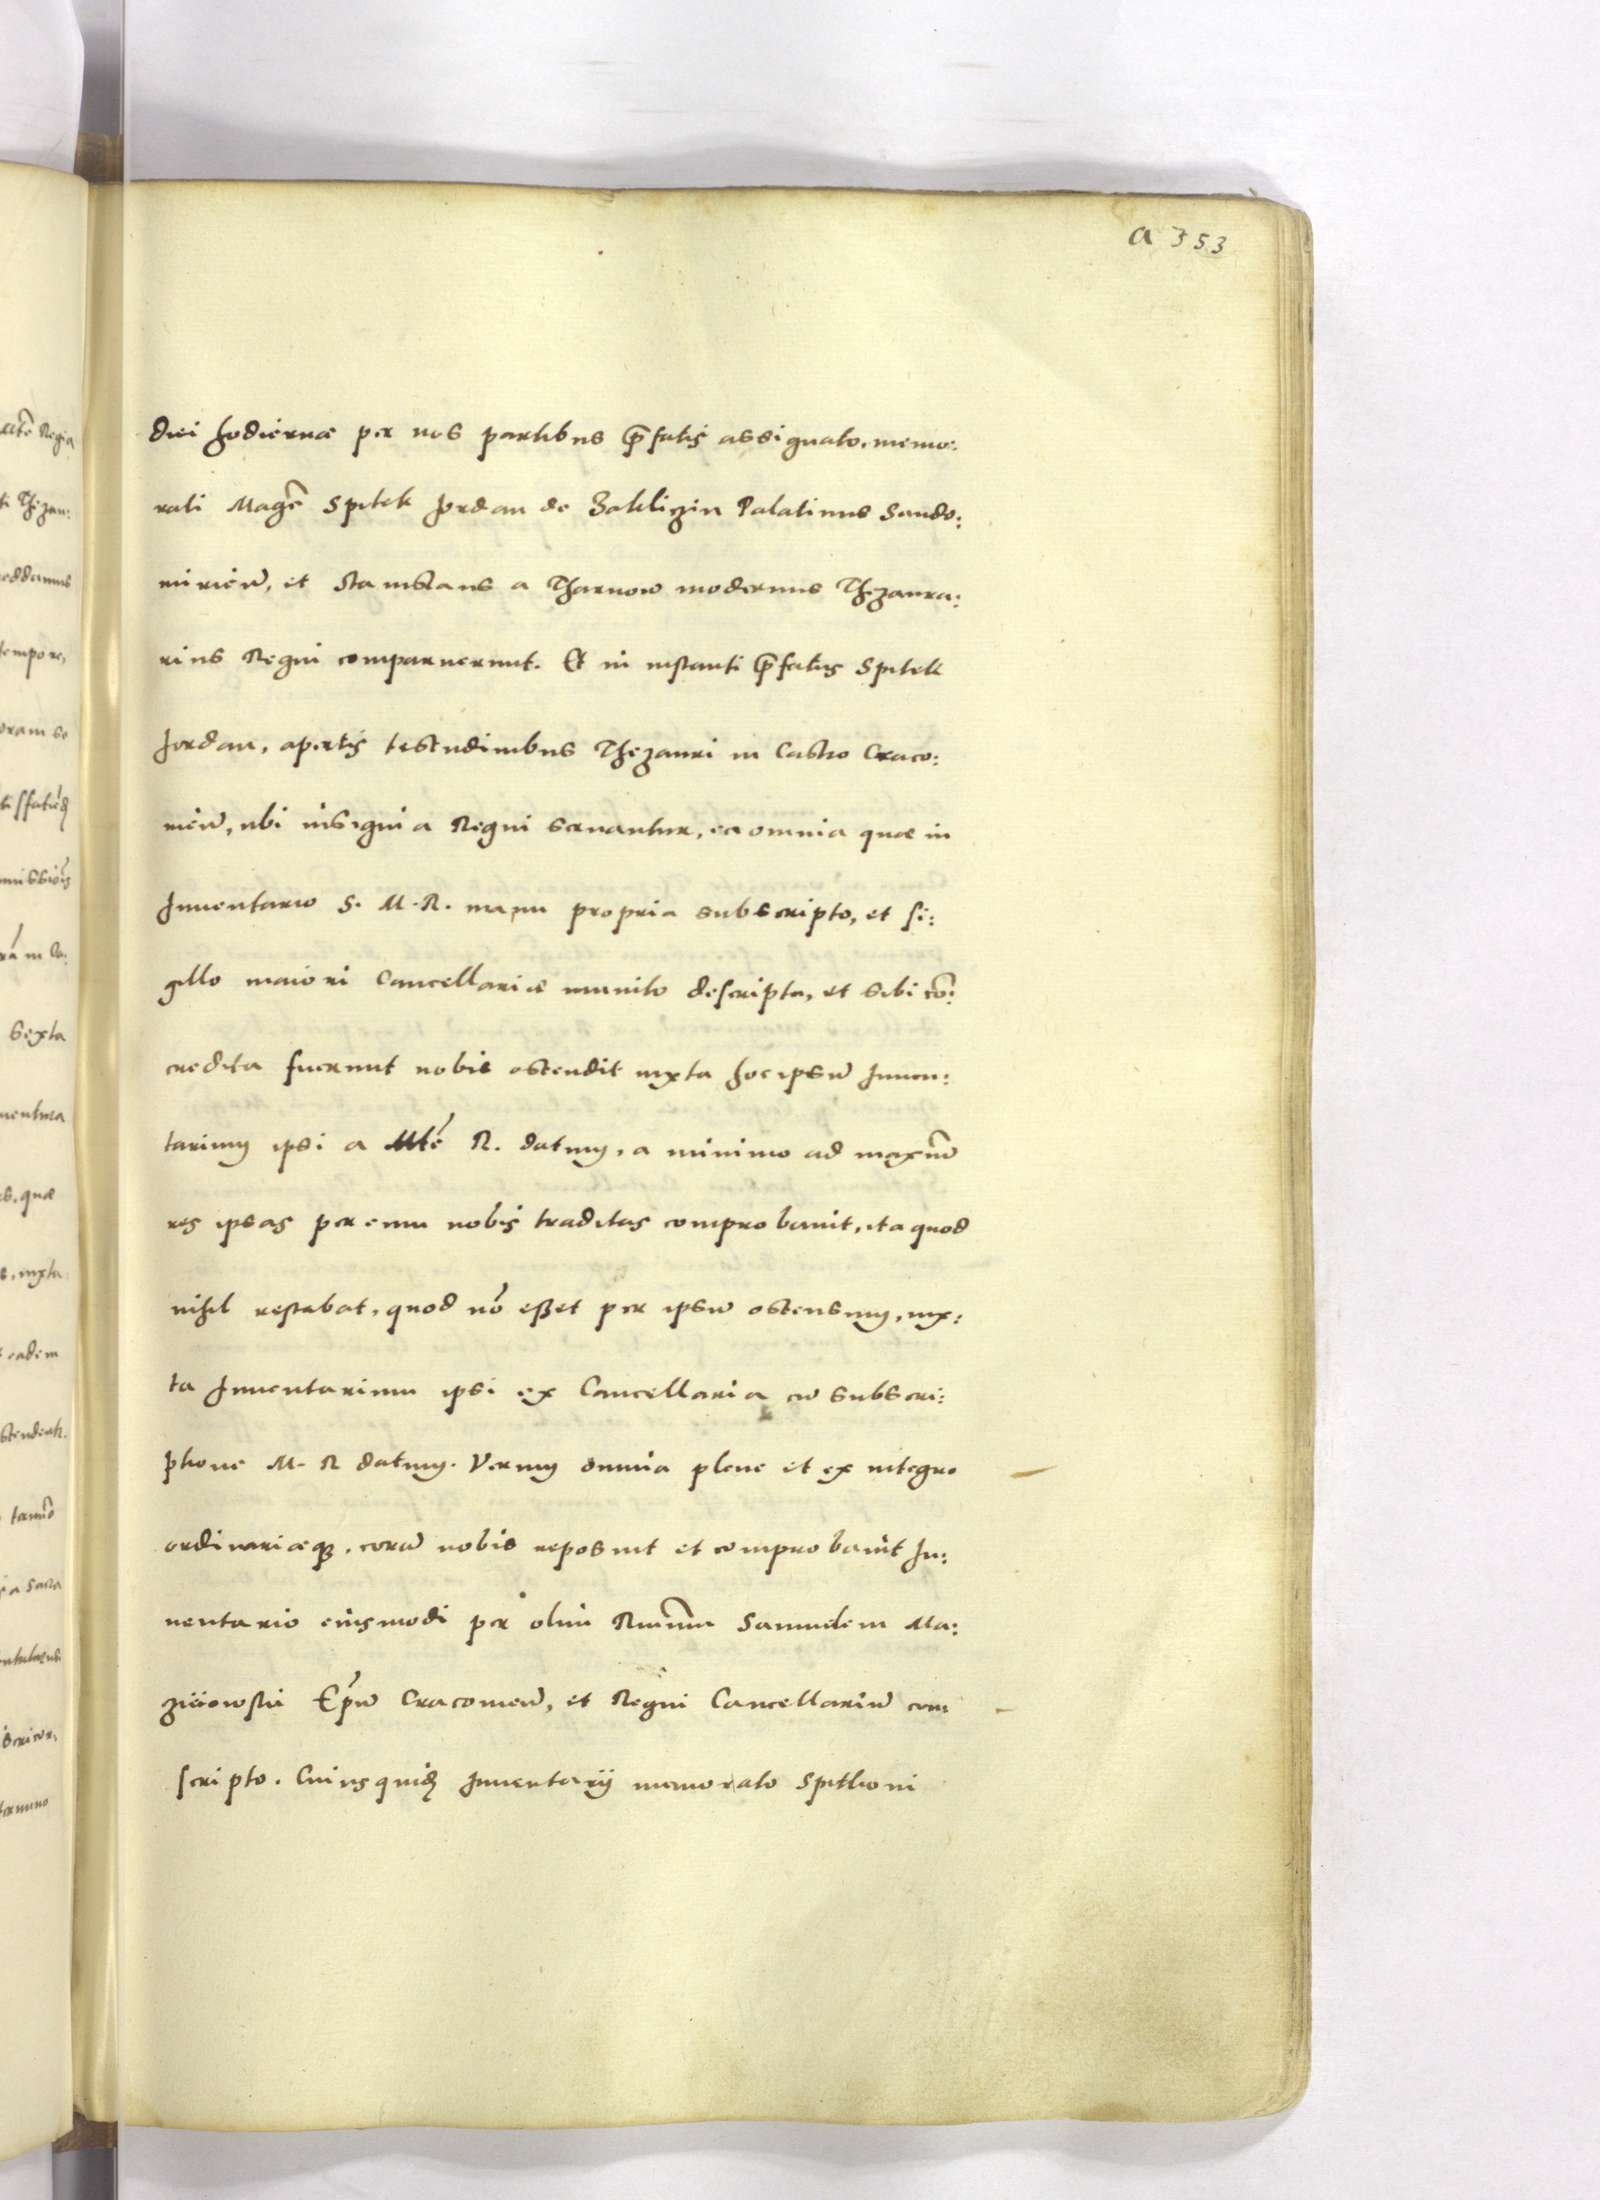 a 353
diei hodiernæ per nos partibus p̃fatis assignato, memo:
rati Magc̃e Spitek Jordan de Zakliczin Palatinus Sando:
mirieñ, et Stanislaus a Tharnow modernus Thezaura:
rius Regni comparuerunt. Et in instanti p̃fatus Spitek
Jordan, apertis testudinibus Thezauri in Castro Craco:
nieñ, ubi insignia Regni servantur, ea omnia quæ in
Inventario S. M. R. manu propria subscripto, et si:
gillo maiori Cancellariæ munito descripta, et sibi cõ:
credita fuerunt nobis ostendit iuxta hoc ipsũ Inven:
tarium ipsi a Mte R. datum, a minimo ad maximũ
res ipsas per eum nobis traditas comprobauit, ita quod
nihil restabat, quod nõ esset per ipsũ ostensum, iux:
ta Inuentarium ipsi ex Cancellaria cũ subscri:
ptione M. R datum. Verum omnia plene et ex integro
ordinariæq3, corã nobis reposuit et comprobauit In:
uentario eiusmodi per olim Rmũm Samuelem Ma:
zieiowski Ep̃ũ Cracouieñ, et Regni Cancellariũ con
scripto. Cuiusquid Inuentarij memorato Spithoni